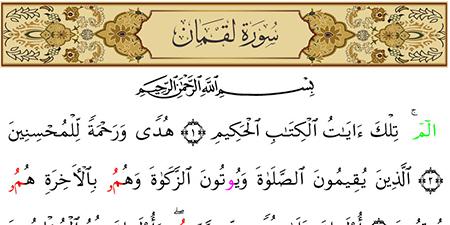 سُورَةُ لُقْمَانَ
بِسْمِ اللَّهِ الرَّحْمَٰنِ الرَّحِيمِ
الٓمٓۚ تِلْكَ ءَايَٰتُ الْكِتَٰبِ الْحَكِيمِ ﴿١﴾ هُدًى وَرَحْمَةً لِّلْمُحْسِنِينَ
﴿٢﴾ الَّذِينَ يُقِيمُونَ الصَّلَوٰةَ وَيُوتُونَ الزَّكَوٰةَ وَهُمُۥ بِالْأَخِرَةِ هُمُۥ